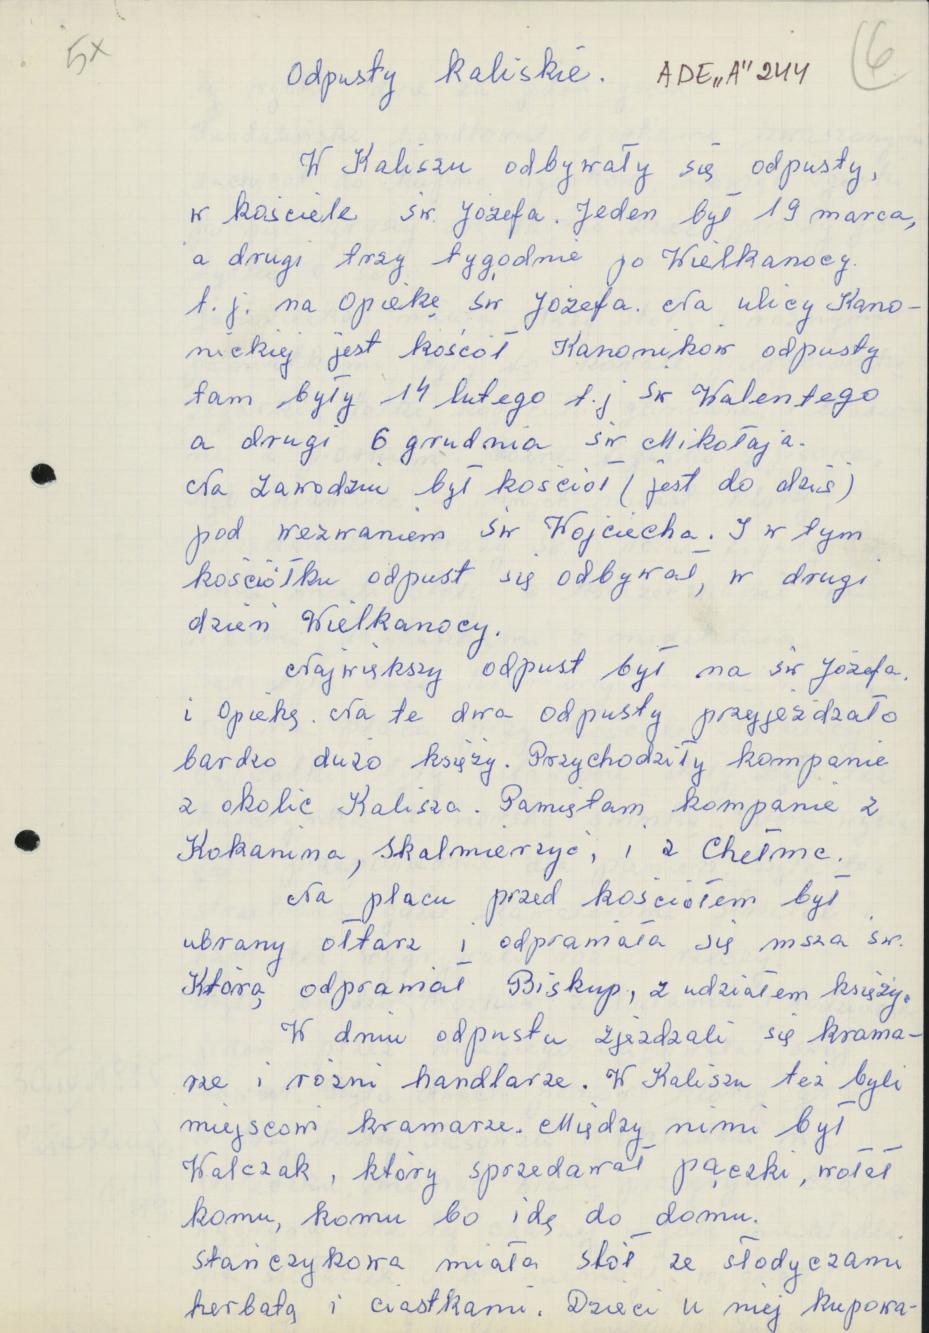 5x
6
Odpusty kaliskie. ADE „A" 244
W Kaliszu odbywały się odpusty,
w kościele św. Józefa. Jeden był 19 marca,
a drugi trzy tygodnie po Wielkanocy.
t.j. na Opiekę św Józefa. Na ulicy Kano-
nickiej jest kościół Kanoników odpusty
tam były 14 lutego t.j św Walentego
a drugi 6 grudnia św Mikołaja.
Na Zawodziu był kościół (jest do dziś)
pod wezwaniem św Wojciecha. I w tym
kościółku odpust się odbywał, w drugi
dzień Wielkanocy.
Największy odpust był na św Józefa.
i Opiekę. Na te dwa odpusty przyjeżdżało
bardzo dużo księży. Przychodziły kompanie
z okolic Kalisza. Pamiętam kompanie z
Kokanina, Skalmierzyc, i z Chełmc.
Na placu przed kościołem był
ubrany ołtarz i odprawiała się msza św.
Którą odprawiał Biskup, z udziałem księży.
W dniu odpustu zjeżdzali się krama-
rze i różni handlarze. W Kaliszu też byli
miejscowi kramarze. Między nimi był
Walczak, który sprzedawał pączki, wołał
komu, komu bo idę do domu.
Stańczykowa miała stół ze słodyczami
herbatą i ciastkami. Dzieci u niej kupowa-